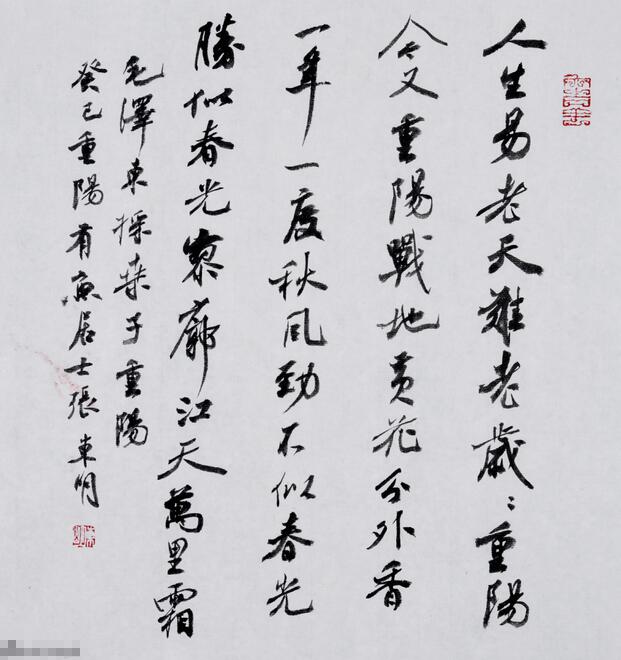 人生易老天難老歲〻重陽
今又重陽戰地黄花分外香
一年一度秋風勁不似春光
勝似春光寥廓江天萬里霜
毛澤東採桑子重陽
癸巳重陽有漁居士張東明